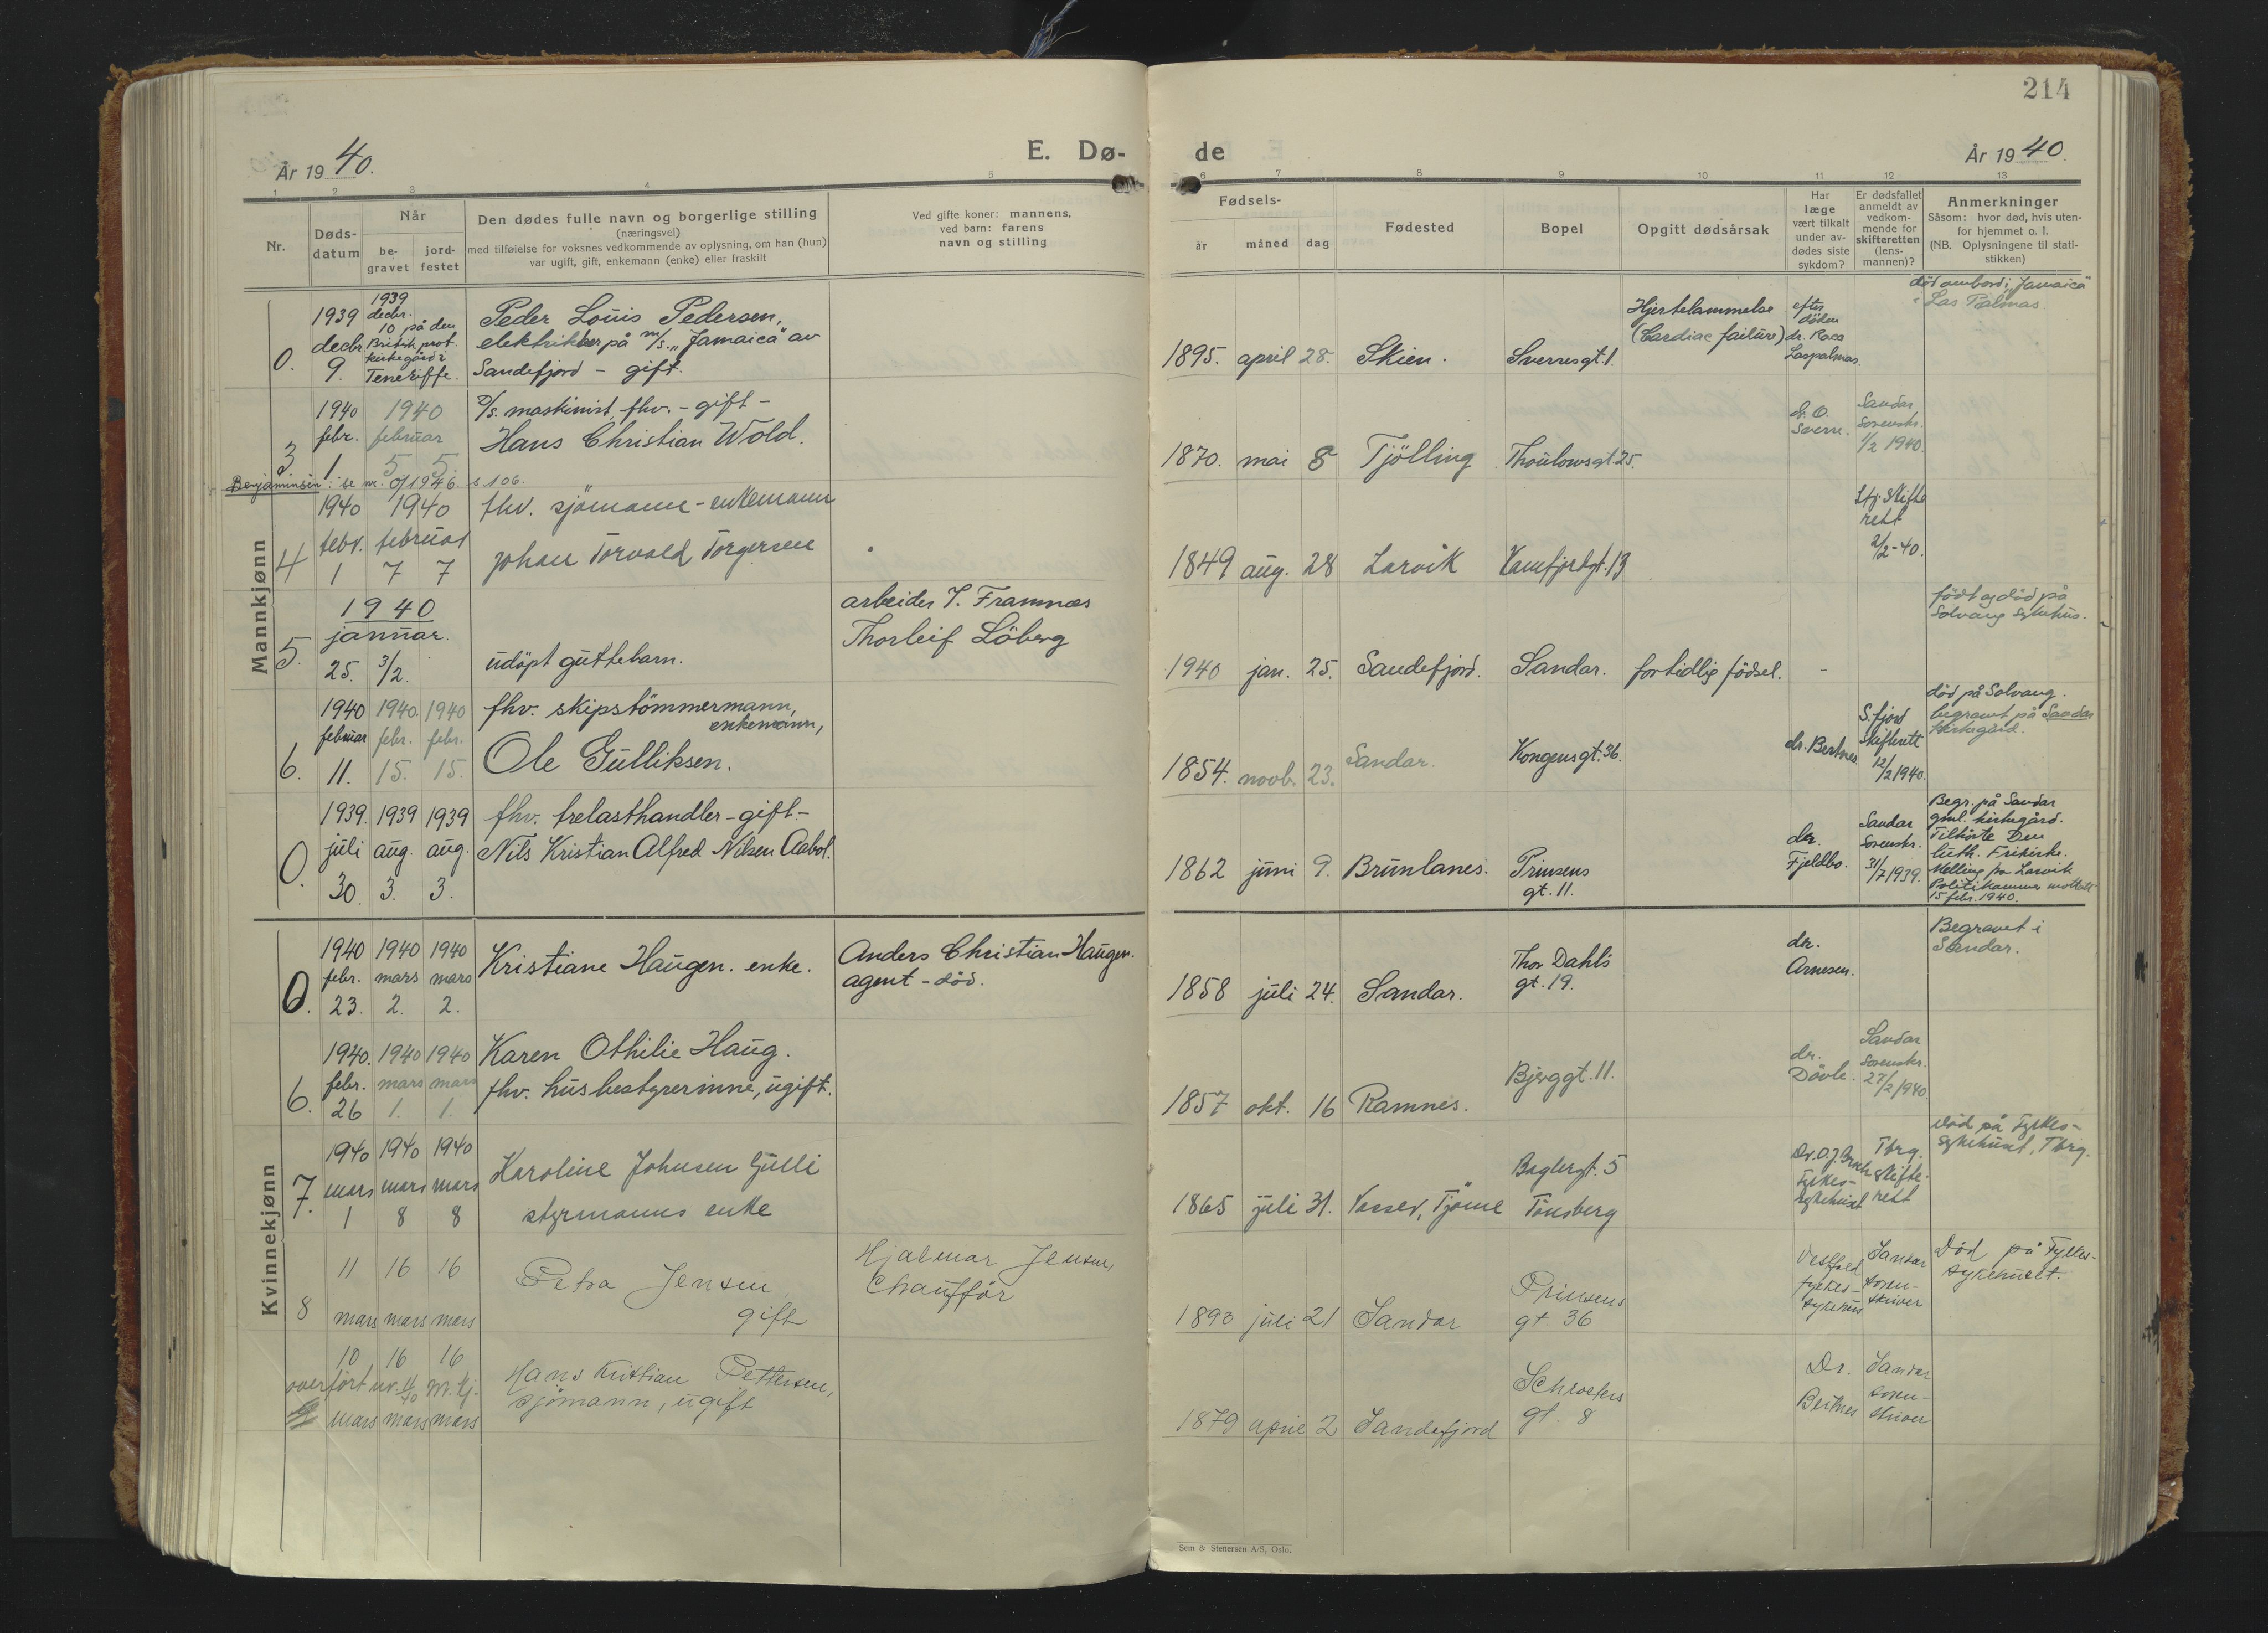 214
År 1940.
E. Dø-
de
År 1940.
1 2 3 4 5 6 7 7 8 9 10 11 12 13
Nr.
Døds-
datum
Når
be-
gravet
jord-
festet
Den dødes fulle navn og borgerlige stilling
(næringsvei)
med tilføielse for voksnes vedkommende av oplysning, om han (hun)
var ugift, gift, enkemann (enke) eller fraskilt
Ved gifte koner: mannens,
ved barn: farens
navn og stilling
Fødsels-
år måned dag
Fødested
Bopel
Opgitt dødsårsak
Har
læge
vært tilkalt
under av-
dødes siste
sykdom?
Er dødsfallet
anmeldt av
vedkom-
mende for
skifteretten
(lens-
mannen)?
Anmerkninger
Såsom: hvor død, hvis uten-
for hjemmet o. l.
(NB. Oplysningene til stati-
stikken)
Mannkjønn
0.
1939
decbr.
9.
1939
decbr.
10 på den
British prot.
kirkegård i
Teneriffe.
Peder Louis Pedersen,
elektriker på m/s. „Jamaica" av
Sandefjord - gift.
1895. april 28. Skien. Sverresgt. 1.
Hjertelammelse
(Cardiac failure)
efter
døden
dr. Roca
Laspalmas.
død ombord i „Jamaica"
Las Palmas.
3
1940 1940
febr. februar
1 5 5
maskinist, fhv. - gift -
Hans Christian Wold.
1870. mai 8 Tjölling Thaulowsgt. 25.
dr. O.
Sverre.
Sandar
Sorenskr.
1/2 1940.
Benjaminsen: se nr. 0/1946. s 106.
4
1940 1940
febr. februar
1 7 7
fhv. sjömann - enkemann
Johan Torvald Torgersen
1849 aug. 28 Larvik Kamfjordgt. 13
Sfj. Skifte
rett
2/2-40.
5.
1940
januar.
25. 3/2.
udöpt guttebarn.
arbeider V. Framnæs
Thorleif Löberg
1940 jan. 25. Sandefjord. Sandar. for tidlig födsel. -
födt og död på
Solvang sykehus.
6.
1940 1940. 1940
februar febr. febr.
11. 15. 15.
fhv. skipstömmermann,
enkemann,
Ole Gulliksen.
1854. novb. 23. Sandar. Kongensgt. 36.
dr. Bertnes
S.fjord
skifterett
12/2 1940.
död på Solvang.
begravet på Sandar
kirkegård.
0.
1939. 1939 1939
juli aug. aug.
30. 3. 3.
fhv. trelasthandler - gift -
Nils Kristian Alfred Nilsen Aabol.
1862 juni 9. Brunlanes. Prinsens
gt. 11.
dr.
Fjeldbo.
Sandar
Sorenskr.
31/7 1939.
Begr. på Sandar
gml. kirkegård.
Tilhörte Den
luth. Frikirke.
Melding fra Larvik
Politikammer mottatt
15 febr. 1940.
Kvinnekjønn
0.
1940 1940 1940
febr. mars mars
23. 2. 2.
Kristiane Haugen. enke.
Anders Christian Haugen.
agent - död.
1858 juli 24. Sandar.
Thor Dahl's
gt. 19.
dr.
Arnesen.
Begravet i
Sandar.
6.
1940. 1940 1940
febr. mars mars
26 1. 1.
Karen Othilie Haug.
fhv. husbestyrerinne, ugift.
1857 okt. 16 Ramnes.
Bjerggt. 11.
dr.
Dövle.
Sandar
Sorenskr.
27/2 1940.
7.
1940 1940 1940
mars mars mars
1 8 8
Karoline Johnsen Gulli
styrmanns enke
1865 juli 31. Vasser, Tjöme
Baglergt. 5
Tönsberg
Dr. O. J. Broch
Fylkes-
sykehuset
Tbrg.
skifte-
rett
död på Fylkes-
sykehuset, Tbrg.
8
11 16 16
mars mars mars
Petra Jensen
gift
Hjalmar Jensen,
Chaufför
1893 juli 21 Sandar
Prinsens
gt. 36
Vestfold
fylkes-
sykehus
Sandar
soren-
skriver
Död på Fylkes-
sykehuset.
10 16 16
overfört nr. M. kj.
mars mars mars
Hans Kristian Pettersen,
sjömann, ugift
1879 april 2 Sandefjord
Schroeters
gt. 8
Dr.
Bertnes
Sandar
soren-
skriver
Sem & Stenersen A/S, Oslo.